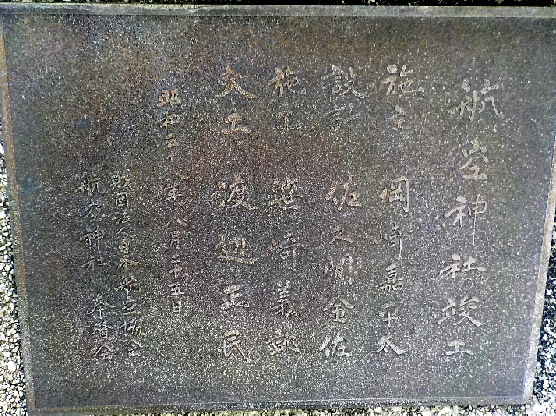 航空神社竣工
施主 岡崎嘉平太
設計 佐久間金佐
施工 岩崎義
大工 渡辺正民
昭和五十 年八月二十五日
財団法人日本航空協会
航空神社奉賛会